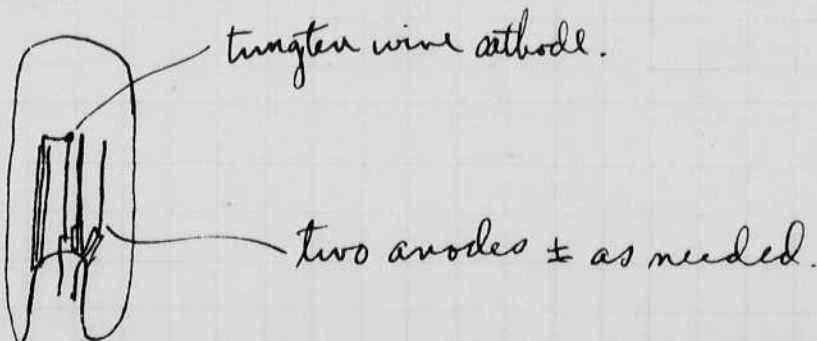 tungten wire cathode.
two anodes ± as needed.